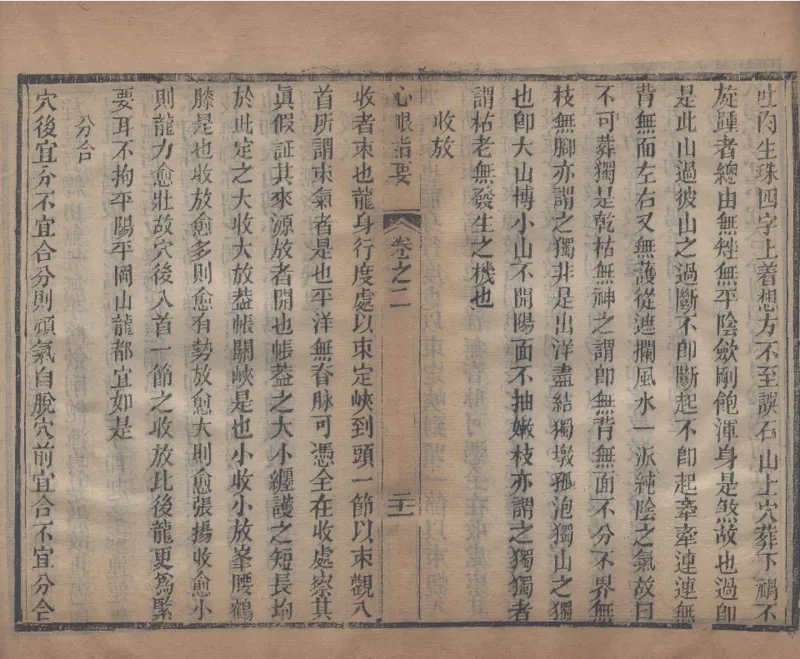 吐肉生珠四字上着想方不至誤石山上穴葬下禍不
旋踵者總由無矬無平陰歛剛飽渾身是煞故也過卽
是此山過彼山之過斷不卽斷起不卽起牽牽連連無
背無面左右又無護從遮攔風水一派純陰之氣故曰
不可葬獨是乾枯無神之謂卽無背無面不分不界無
枝無脚亦謂之獨非是出洋盡結獨墩孤泡獨山之獨
也卽大山博小山不開陽面不抽嫩枝亦謂之獨獨者
謂枯老無發生之機也
收放
心眼指要
卷之二
二十一
收者束也龍身行度處以束定峽到頭一節以束觀入
首所謂束氣者是也平洋無脊脉可憑全在收處察其
眞假証其來源放者開也帳葢之大小纏護之短長均
於此定之大收大放葢帳關峽是也小收小放峯腰鶴
膝是也收放愈多則愈有勢放愈大則愈張揚收愈小
則龍力愈壯故穴後入首一節之收放比後龍更爲緊
要耳不拘平陽平岡山龍都宜如是
分合
穴後宜分不宜合分則頑氣自脫穴前宜合不宜分合